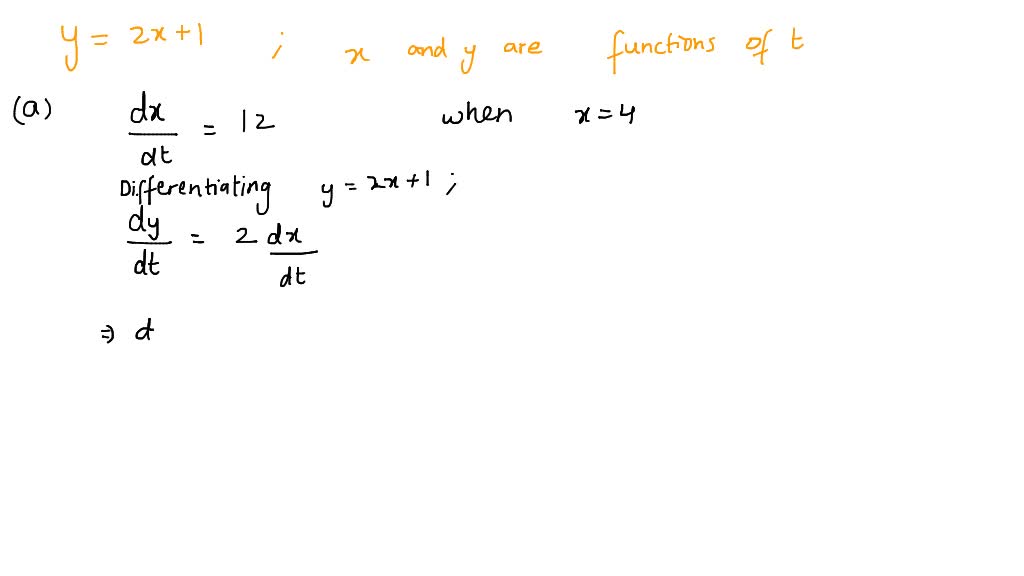 y = 2x+1 ; x and y are functions of t
(a) dx/dt = 12 when x=4
Differentiating y = 2x+1 ;
dy/dt = 2 dx/dt
⇒ d